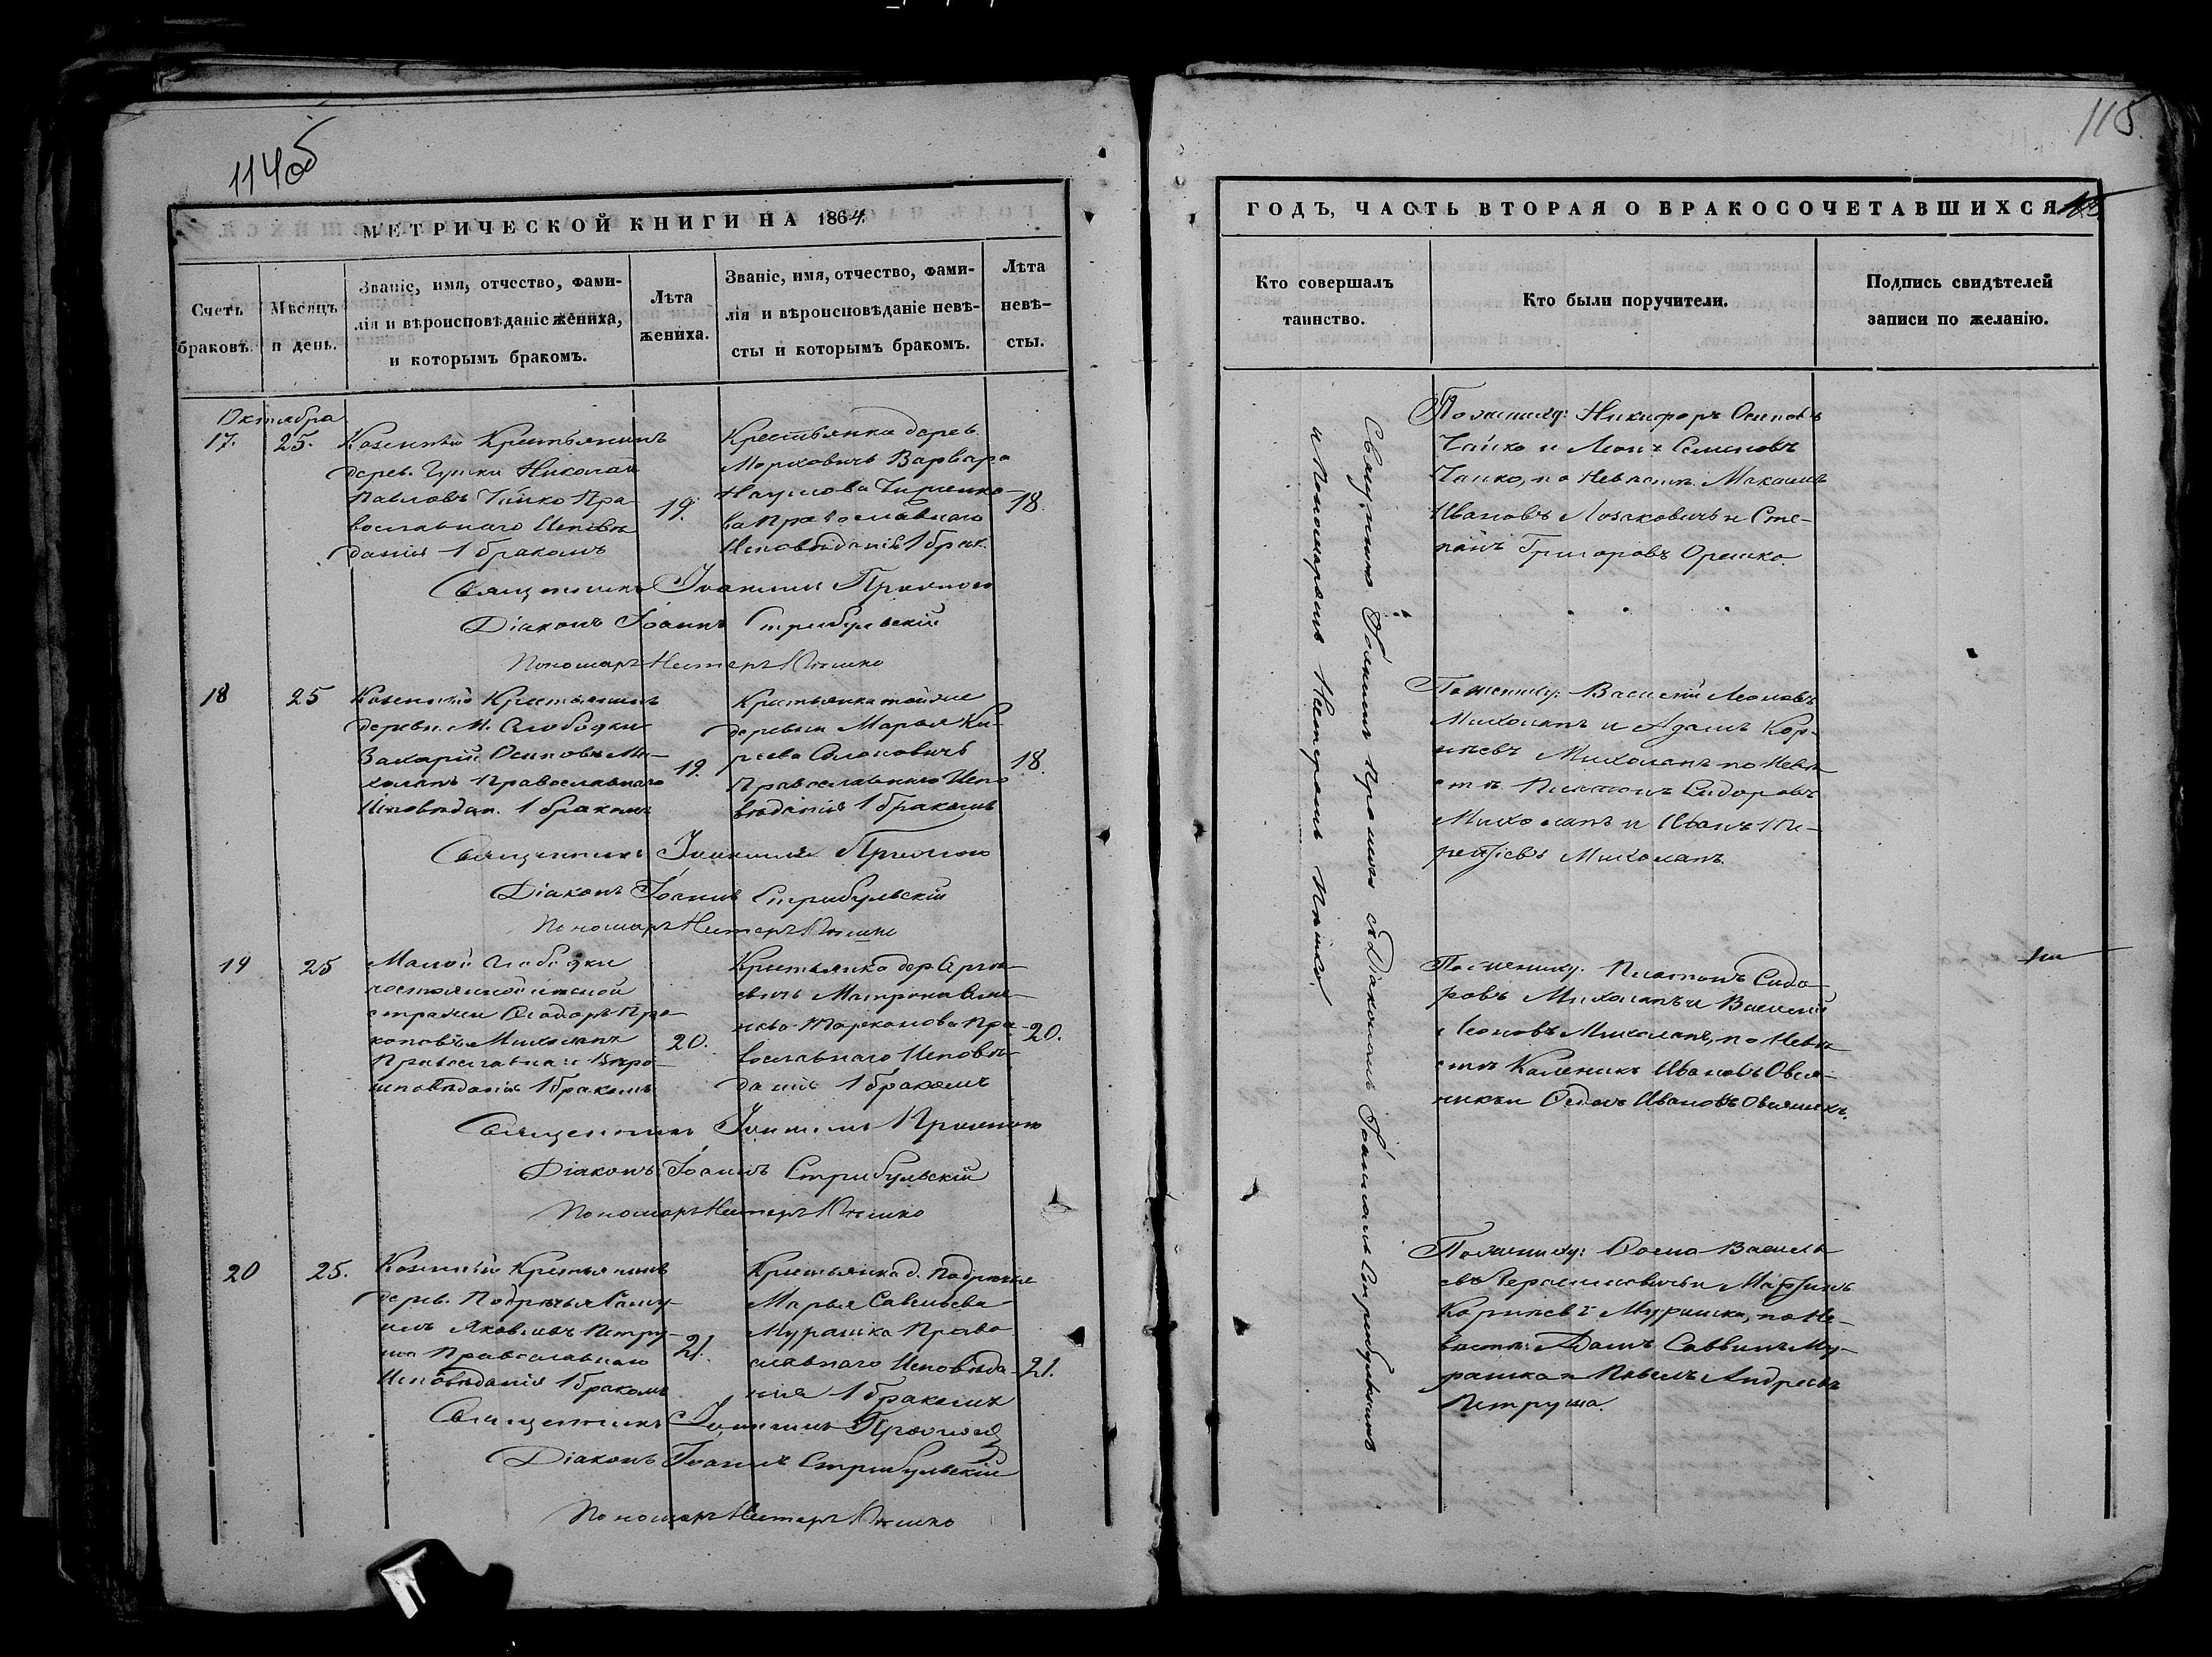 114об
МЕТРИЧЕСКОЙ КНИГИ НА 1864
Счетъ браковъ.
Мѣсяцъ и день.
Званіе, имя, отчество, фами-
лія и вѣроисповѣданіе жениха,
и которымъ бракомъ.
Лѣта жениха.
Званіе, имя, отчество, фами-
лія и вѣроисповѣданіе невѣ-
сты и которымъ бракомъ.
Лѣта невѣ-
сты.
Октября
17. 25.
Козенный Крестьянинъ
дерев. Гупки Николай
Павловъ Чайко Пра-
вославнаго Исповѣ
данія 1 бракомъ
19.
Крестьянка дерев.
Морховичъ Варвара
Наумова
ва Православнаго
Исповѣданія 1 брак.
18.
Священникъ Іоакимъ
Діаконъ Іоаннъ Стрибульскій
Пономарь Нестеръ
18 25
Козенный Крестьянинъ
деревн. М. Слободки
Захарій Осиповъ Ми-
холапъ Православнаго
Исповѣдан. 1 бракомъ
19.
Крестьянка тойже
деревни Марья Ки-
реева
Православнаго Испо
вѣданія 1 бракомъ
18.
Священникъ Іоакимъ
Діаконъ Іоаннъ Стрибульскій
Пономарь Нестеръ
19 25
Малой Слободки
постоянной лѣсной
стражи Ѳеодоръ Про-
коповъ Михолапъ
Православнаго Вѣро-
исповѣданія 1 бракомъ
20.
Крестьянка дер. Серги-
евичъ Матрона
Тарканова Пра-
вославнаго Исповѣ-
данія 1 бракомъ
20.
Священникъ Іоакимъ
Діаконъ Іоаннъ Стрибульскій
Пономарь Нестеръ
20 25.
Козенный Крестьянинъ
дерев. Подрѣчья Саму-
илъ Яковлевъ Петру-
ша Православнаго
Исповѣданія 1 бракомъ
21.
Крестьянка д. Подрѣчья
Марья Савельева
Мурашка Право
славнаго Исповѣда-
нія 1 бракомъ
21.
Священникъ Іоакимъ
Діаконъ Іоаннъ Стрибульскій
Пономарь Нестеръ
115
ГОДЪ, ЧАСТЬ ВТОРАЯ О БРАКОСОЧЕТАВШИХСЯ
Кто совершалъ таинство.
Кто были поручители.
Подпись свидѣтелей
записи по желанію.
Священникъ Іоакимъ съ Діакономъ Іоанномъ Стрибульскимъ
и Пономаремъ Нестеромъ
По жениху: Никифоръ Осиповъ
Чайко и Леонъ Семеновъ
Чайко, по Невѣстѣ Максимъ
Ивановъ Лозаковичъ и Сте-
панъ Григоровъ Орешко.
По жениху: Василій Леоновъ
Михолапъ и Адамъ Кор-
нѣевъ Михолапъ по Невѣ
стѣ Платонъ Сидоровъ
Михолапъ и Иванъ Ти-
Михолапъ.
По жениху: Платонъ Сидо-
ровъ Михолапъ и Василій
Леоновъ Михолапъ, по Невѣ
стѣ Каленикъ Ивановъ Овся-
никъ и Ѳедоръ Ивановъ Овсяникъ.
По жениху: Ѳома Василь
евъ Герасимовичъ и Марѳинъ
Корнѣевъ Мурашка, по Не-
вѣстѣ: Адамъ Саввинъ Му-
рашка и Павелъ Андреевъ
Петруша.